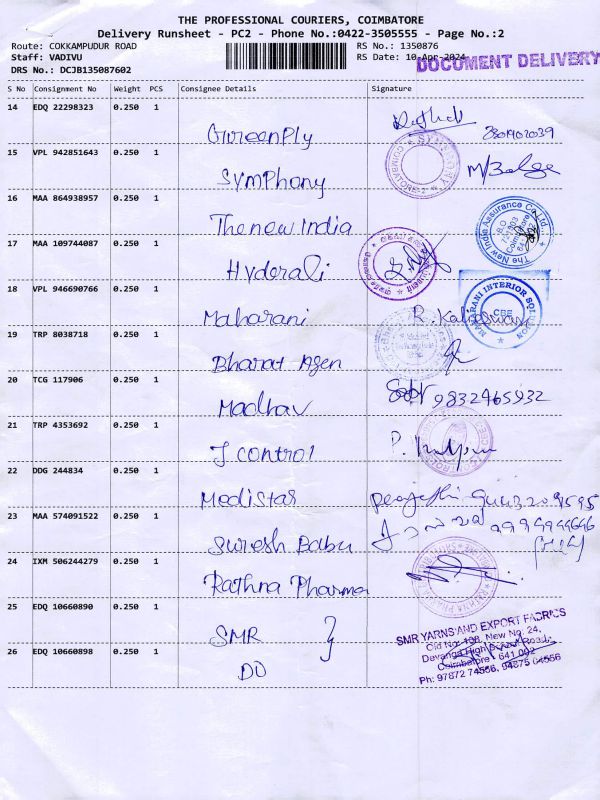 THE PROFESSIONAL COURIERS, COIMBATORE
Delivery Runsheet - PC2 - Phone No.:0422-3505555 - Page No.:2
Route: COKKAMPUDUR ROAD
RS No.: 1350876
Staff: VADIVU
RS Date: 10-Apr-2024
DOCUMENT DELIVERY
DRS No.: DCJB135087602
S No Consignment No Weight PCS Consignee Details Signature
14 EDQ 22298323 0.250 1
GreenPly
15 VPL 942851643 0.250 1
SYMPhony
16 MAA 864938957 0.250 1
The new India
17 MAA 109744087 0.250 1
Hyderali
18 VPL 946690766 0.250 1
Maharani
19 TRP 8038718 0.250 1
Bharat Agen
20 TCG 117906 0.250 1
Madhav 9832465932
21 TRP 4353692 0.250 1
J control
22 DDG 244834 0.250 1
Medistar
23 MAA 574091522 0.250 1
Suresh Babu
24 IXM 506244279 0.250 1
Rathna Pharma
25 EDQ 10660890 0.250 1
SMR
26 EDQ 10660898 0.250 1
DO
The New India Assurance Co. Ltd.
MAHARANI INTERIOR SOLUTION
CBE
SMR YARNS AND EXPORT FABRICS
Old No: 10B, New No. 24,
Devanga High School Road,
Coimbatore - 641 002
Ph: 97872 74556, 94875 64556